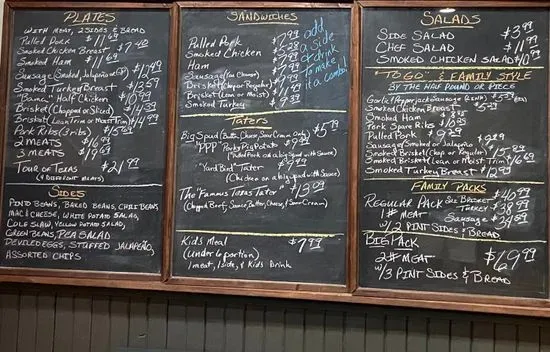 PLATES
WITH MEAT, 2 SIDES & BREAD
Pulled Pork $11.69
Smoked Chicken Breast $7.40
Smoked Ham $11.69
Sausage (Smoked, Jalapeño
Smoked Turkey Breast $13.59
"Bama" Half Chicken $10.99
Brisket (Chopped or Sliced)
Brisket (Lean Trim or Moist Trim)
Pork Ribs (3 ribs) $15.69
2 MEATS $16.99
3 MEATS $19.69
TOUR OF TEXAS $21.99
SIDES
PINTO BEANS, BAKED BEANS, CHILI BEANS,
MAC & CHEESE, WHITE POTATO SALAD,
COLE SLAW, YELLOW POTATO SALAD,
GREEN BEANS, PEA SALAD
DEVILED EGGS, STUFFED JALAPEÑO,
ASSORTED CHIPS
SANDWICHES
Pulled Pork $7.99
Smoked Chicken
Ham $7.99
Sausage (You Choose)
Brisket (Chop or Regular)
Brisket (Lean or Moist)
Smoked Turkey
add
a side
& drink
to make
it a combo!
TATERS
Big Spud (Butter, Cheese, Sour Cream Only) $5.79
"PPP" Porky Pig Potato $9.99
(Pulled Pork on a big spud with Sauce)
"Yard Bird" Tater
(Chicken on a big spud with Sauce)
The "Famous Texas Tater" $13.99
(Chopped Beef, Sauce, Butter, Cheese, & Sour Cream)
Kids Meal $7.99
(Under 6 portion)
1 meat, 1 side, & Kids Drink
SALADS
SIDE SALAD $3.99
CHEF SALAD $11.99
SMOKED CHICKEN SALAD $10.99
"TO GO" & FAMILY STYLE
BY THE HALF POUND OR PIECE
Garlic Pepperjack Sausage (LINK)
Smoked Chicken Breast
Smoked Ham
Pork Spare Ribs
Pulled Pork $9.29
Sausage (Smoked or Jalapeño)
Smoked Brisket (Chop or Regular)
Smoked Brisket (Lean or Moist Trim)
Smoked Turkey Breast $12.99
FAMILY PACKS
REGULAR PACK
BRISKET $40.99
TURKEY $38.99
SAUSAGE $39.99
1# MEAT
W/ 2 PINT SIDES & BREAD
BIG PACK $69.99
2# MEAT
W/ 3 PINT SIDES & BREAD